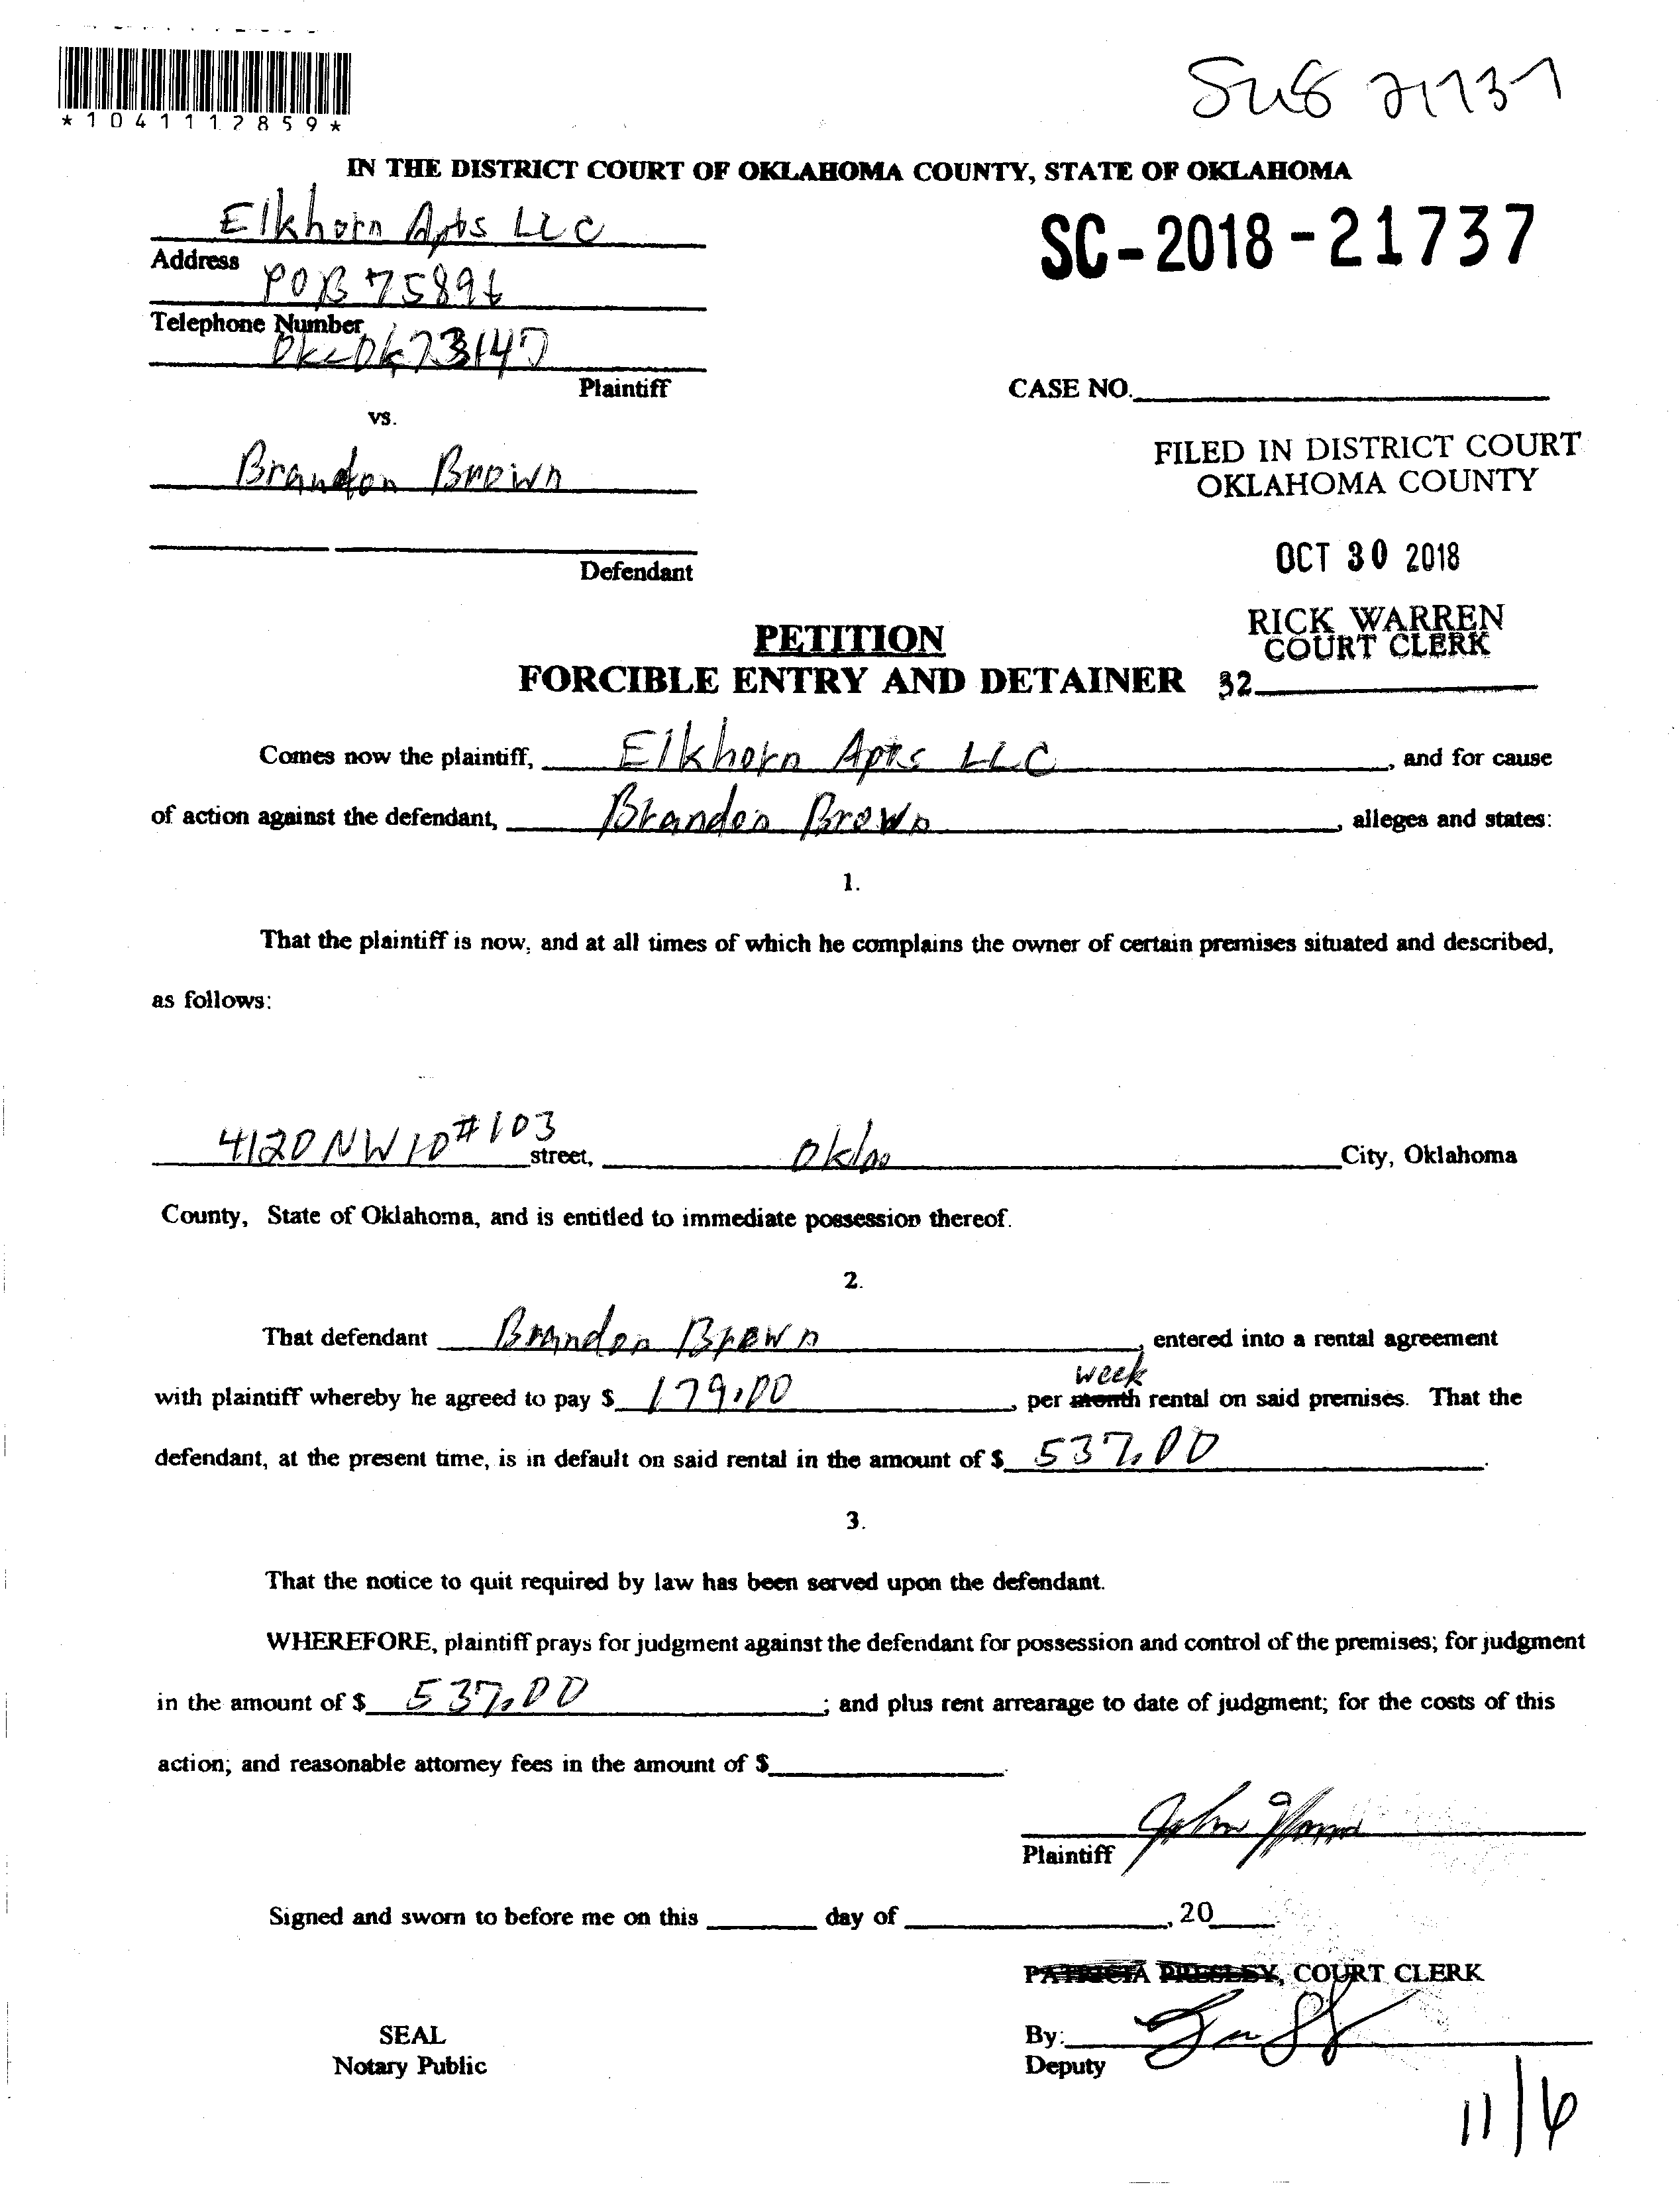 *1041112859*
SC-2018-21737
IN THE DISTRICT COURT OF OKLAHOMA COUNTY, STATE OF OKLAHOMA
Elkhorn Apts LLC
Address
POB 75896
Telephone Number
OKC OK 73147
Plaintiff
CASE NO.
vs.
Brandon Brown
FILED IN DISTRICT COURT
OKLAHOMA COUNTY
OCT 30 2018
Defendant
RICK WARREN
COURT CLERK
32
PETITION
FORCIBLE ENTRY AND DETAINER
Comes now the plaintiff, Elkhorn Apts LLC, and for cause
of action against the defendant, Brandon Brown, alleges and states:
1.
That the plaintiff is now, and at all times of which he complains the owner of certain premises situated and described,
as follows:
4120 NW 10 #103 street, Okla City, Oklahoma
County, State of Oklahoma, and is entitled to immediate possession thereof.
2.
That defendant Brandon Brown, entered into a rental agreement
week
with plaintiff whereby he agreed to pay $ 179.00, per month rental on said premises. That the
defendant, at the present time, is in default on said rental in the amount of $ 537.00.
3.
That the notice to quit required by law has been served upon the defendant.
WHEREFORE, plaintiff prays for judgment against the defendant for possession and control of the premises; for judgment
in the amount of $ 537.00; and plus rent arrearage to date of judgment; for the costs of this
action; and reasonable attorney fees in the amount of $
John
Plaintiff
Signed and sworn to before me on this day of , 20
PATRICIA PRESLEY, COURT CLERK
SEAL
By:
Notary Public
Deputy
11/6